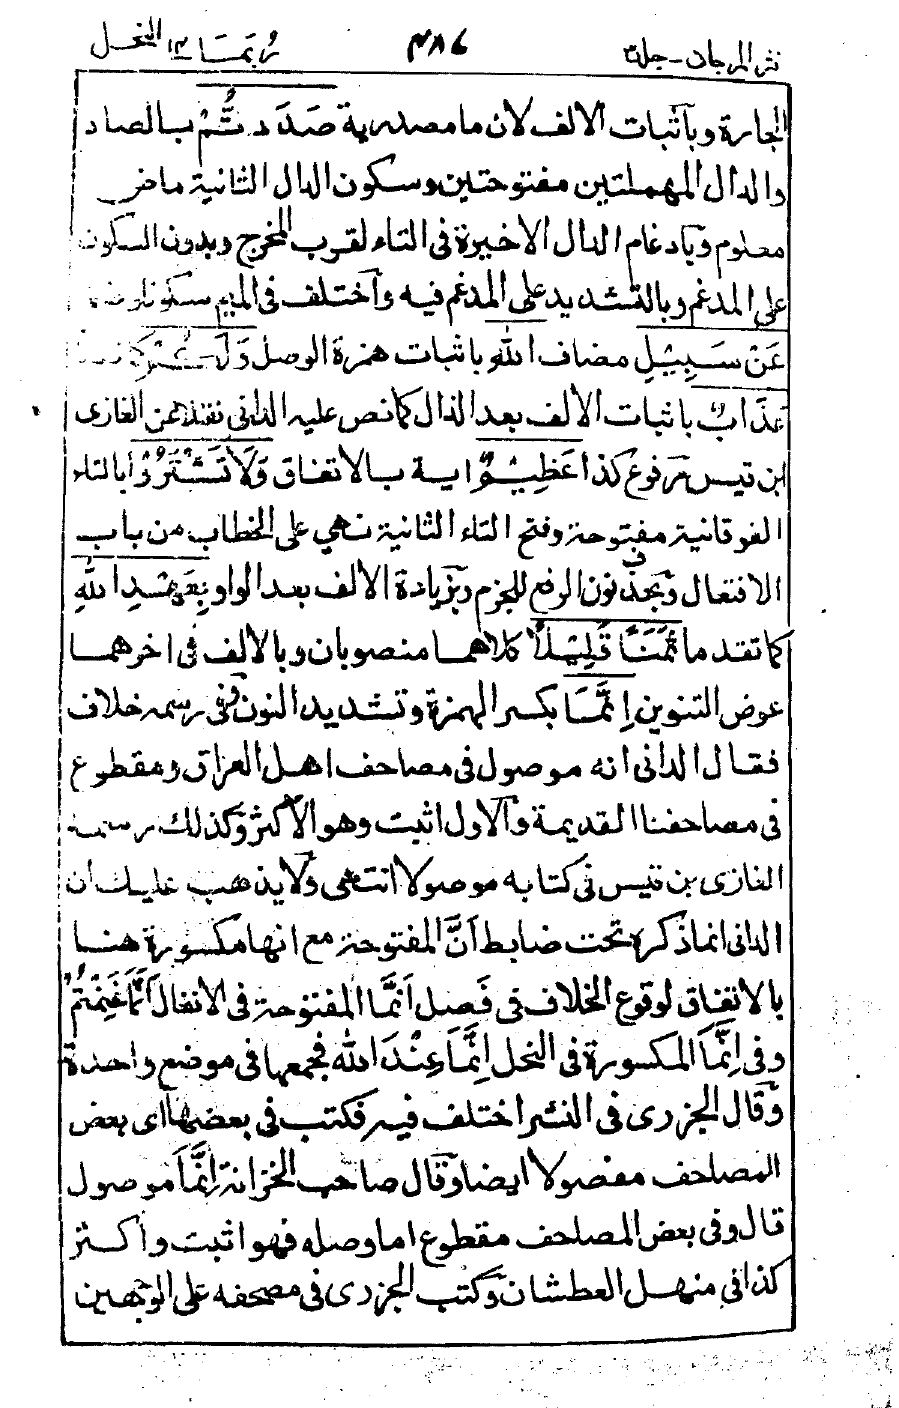 نثر المرجان - جلد٣ ٤٨٦ رُبَمَا ١٤ النحل
الجارة وبآثبات الالف لان ما مصدرية صَدَدتُّمْ بالصاد
والدال المهملتين مفتوحتين وسكون الدال الثانية ماض
معلوم وبادغام الدال الاخيرة فى التاء لقرب المخرج وبدون السكون
على المدغم وبالتشديد على المدغم فيه وآختلف فى الميم سكونا
عَنْ سَبِيْلِ مضاف اللّٰهِ باثبات همزة الوصل وَلَكُمْ
عَذَابٌ باثبات الالف بعد الذال كما نص عليه الدانى نقلا عن الغازى
ابن قيس مرفوع كذا عَظِيْمٌ اية بالاتفاق وَلَا تَشْتَرُوْا بالتاء
الفوقانية مفتوحة وفتح التاء الثانية نهي على الخطاب من باب
الافتعال وبحذف نون الرفع للجزم وبزيادة الالف بعد الواو بِعَهْدِ اللّٰهِ
كما تقدم ثَمَنًا قَلِيْلًا كلاهما منصوبان وبالالف فى اخرهما
عوض التنوين اِنَّمَا بكسر الهمزة وتشديد النون وفى رسمه خلاف
فقال الدانى انه موصول فى مصاحف اهل العراق ومقطوع
فى مصاحفنا القديمة وآلاول اثبت وهو الآكثر وكذلك رسمه
الغازى بن قيس فى كتابه موصولا انتهى ولايذهب عليك ان
الدانى انما ذكره تحت ضابط اَنَّ المفتوحة مع انها مكسورة هنا
بالاتفاق لوقوع الخلاف فى فصل اَنَّمَا المفتوحة فى الانفال اَنَّمَا غَنِمْتُمْ
وفى اِنَّمَا المكسورة فى النحل اِنَّمَا عِنْدَ اللّٰه فجمعها فى موضع واحدة
وَقال الجزرى فى النشر اختلف فيه فكتب فى بعضها اى بعض
المصاحف مفصولا ايضا وَقال صاحب الخزانة اِنَّمَا موصول
قال وفى بعض المصاحف مقطوع اما وصله فهو اثبت واكثر
كذا فى منهل العطشان وَكتب الجزرى فى مصحفه على الوجهين